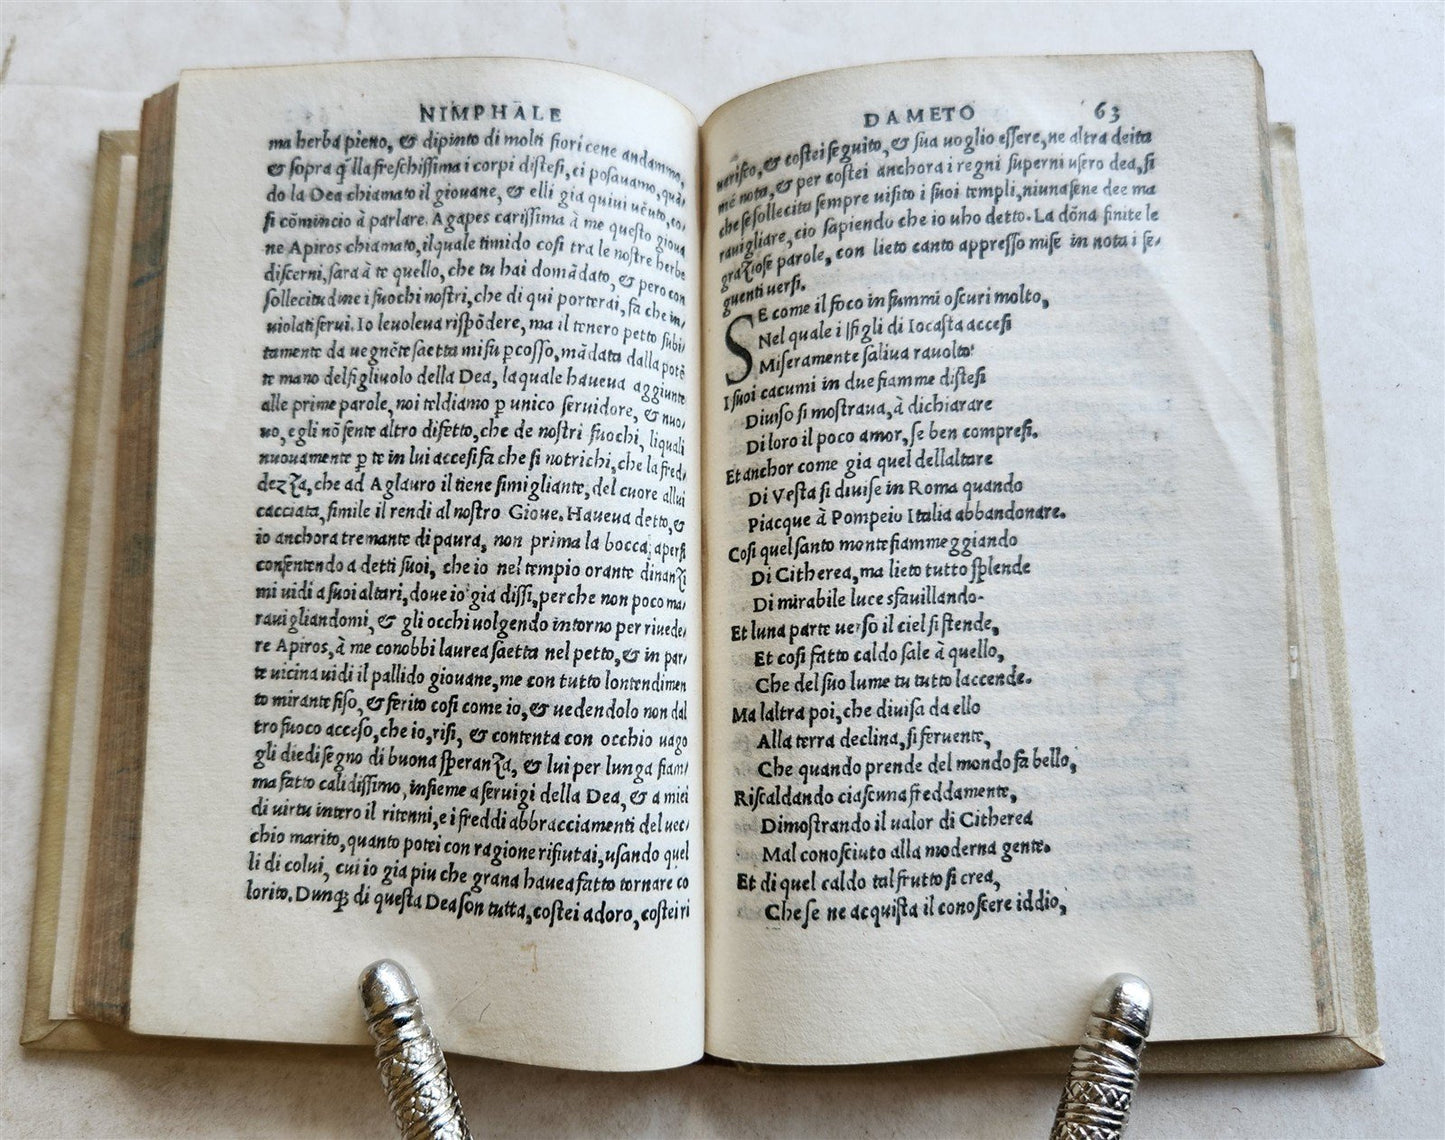 NIMPHALE
ma herba pieno, & dipinto di molti fiori cene andammo,
& sopra q̃lla freschissima i corpi distesi, ci posauamo, quã/
do la Dea chiamato il giouane, & elli gia quiui uẽuto, co/
si cõmincio à parlare. Agapes carissima à me questo gioua
ne Apiros chiamato, ilquale timido cosi tra le nostre herbe
discerni, sara à te quello, che tu hai domãdato, & pero con
sollecitudine i fuochi nostri, che di qui porterai, fa che in/
uiolati serui. Io leuoleua rispõdere, ma il tenero petto subi/
tamente da uegnẽte saetta mi fu ꝑcosso, mãdata dalla potẽ
te mano del figliuolo della Dea, laquale haueua aggiunte
alle prime parole, noi teldiamo ꝑ unico seruidore, & nuo/
uo, egli nõ sente altro difetto, che de nostri fuochi, liquali
nuouamente ꝑ te in lui accesi fa che si notrichi, che la fred/
dezza, che ad Aglauro il tiene simigliante, del cuore allui
cacciata, simile il rendi al nostro Gioue. Haueua detto, &
io anchora tremante di paura, non prima la bocca, apersi
consentendo a detti suoi, che io nel tempio orante dinanzi
mi uidi a suoi altari, doue io gia dissi, perche non poco ma/
rauigliandomi, & gli occhi uolgendo intorno per riuede/
re Apiros, à me conobbi laurea saetta nel petto, & in par/
te uicina uidi il pallido giouane, me con tutto lontendimen
to mirante fiso, & ferito cosi come io, & uedendolo non dal
tro fuoco acceso, che io, risi, & contenta con occhio uago
gli diedi segno di buona speranza, & lui per lunga fiam/
ma fatto calidissimo, insieme a seruigi della Dea, & a miei
di uirtu intero il ritenni, e i freddi abbracciamenti del uec/
chio marito, quanto potei con ragione rifiutai, usando quel
li di colui, cui io gia piu che grana hauea fatto tornare co
lorito. Dunqꝫ di questa Dea son tutta, costei adoro, costei ri
DAMETO 63
uerisco, & costei seguito, & sua uoglio essere, ne altra deita
mé nota, & per costei anchora i regni superni usero dea, si
che se sollecita sempre uisito i suoi templi, niuna sene dee ma
rauigliare, cio sapiendo che io uho detto. La dõna finite le
graziose parole, con lieto canto appresso mise in nota i se/
guenti uersi.
SE come il foco in summi oscuri molto,
Nel quale i ffigli di Iocasta accesi
Miseramente saliua rauolto
I suoi cacumi in due fiamme distesi
Diuiso si mostraua, à dichiarare
Di loro il poco amor, se ben compresi.
Et anchor come gia quel dellaltare
Di Vesta si diuise in Roma quando
Piacque à Pompeiu Italia abbandonare.
Cosi quel santo monte fiammeggiando
Di Citherea, ma lieto tutto splende
Di mirabile luce sfauillando.
Et luna parte uerso il ciel si stende,
Et cosi fatto caldo sale à quello,
Che del suo lume tu tutto laccende.
Ma laltra poi, che diuisa da ello
Alla terra declina, si feruente,
Che quando prende del mondo fa bello,
Riscaldando ciascuna freddamente,
Dimostrando il ualor di Citherea
Mal conosciuto alla moderna gente.
Et di quel caldo tal frutto si crea,
Che se ne acquista il conoscere iddio,